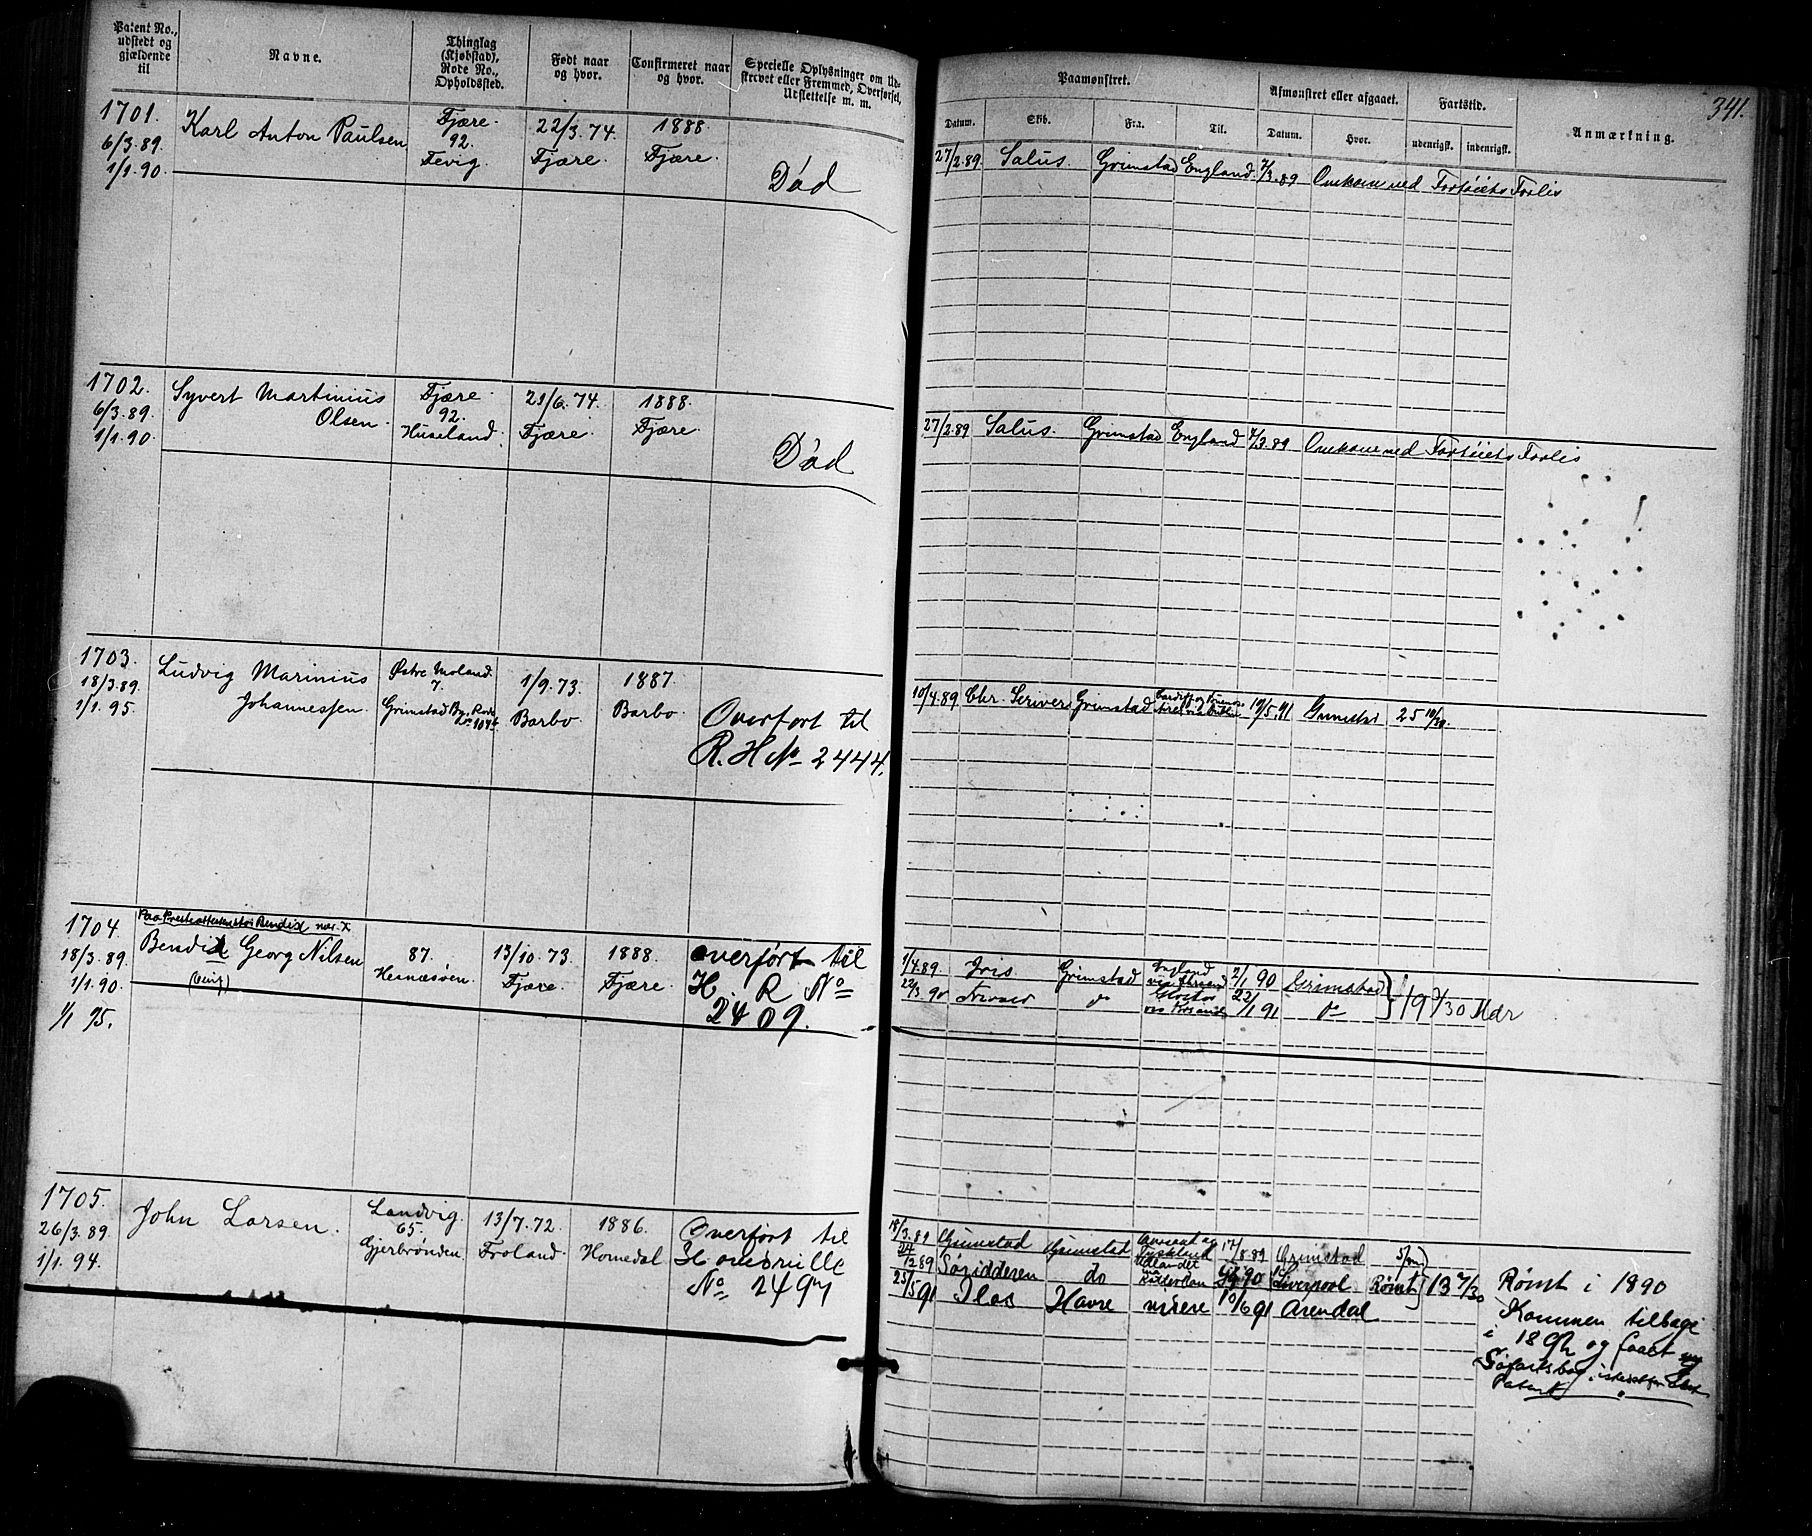 Patent No.,
udstedt og
gjældende
til
Navne.
Thinglag
(Kjøbstad),
Rode No.,
Opholdssted.
Født naar
og hvor.
Confirmeret naar
og hvor.
Specielle Oplysninger om Ud-
skrevet eller Fremmed, Overførsel,
Udslettelse m. m.
Paamønstret.
Datum.
Skib.
Fra.
Til.
Afmønstret eller afgaaet.
Datum.
Hvor.
Fartstid.
udenrigsk.
indenrigsk.
Anmærkning.
341.
1701.
6/3.89.
1/1.90.
Karl Anton Paulsen
Fjære.
92.
Fevig.
22/3.74.
Fjære.
1888.
Fjære.
Död
27/2.89. Salus. Grimstad England. 7/3.89 Omkom ved Fartöiets Forlis
1702.
6/3.89.
1/1.90.
Syvert Martinius
Olsen.
Fjære.
92.
Huseland.
21/6.74.
Fjære.
1888.
Fjære.
Död
27/2.89 Salus. Grimstad England 7/3.89 Omkom ved Fartöiets Forlis
1703.
18/3.89.
1/1.95.
Ludvig Marinius
Johannessen.
Østre Moland.
7.
Grimstad By, Rode
1/9.73.
Barbo
1887.
Barbo.
Overfört til
R. H No 2444.
10/4.89 Chr. Scriver Grimstad
19/5.91 Grimstad 25 10/30.
1704.
18/3.89.
1/1.90.
1/1 95.
Bendix nær. X
Bendix Georg Nilsen
87.
Hesnæsöen.
13/10.73.
Fjære.
1888.
Fjære.
overfört til
H. R No
2409.
1/4.89. Iris Grimstad England 2/1 90 Grimstad
22/3 90 do 22/1 91 do
19 9/30 Mdr
1705.
26/3.89
1/1.94.
John Larsen.
Landvig.
65.
Gjerbrønden
13/7.72.
Froland
1886.
Homedal
Overfört til
Hovedrulle
No 2497
18/3.89 Grimstad Grimstad
17/8.89 Grimstad
24/12 89 Søridderen do
90 Liverpool Rømt 13 7/30
25/5 91 Ilos Havre videre 10/6 91 Arendal
Rømt i 1890
Kommen tilbage
i 1892 og faaet ny
Søfartsbog
Patent